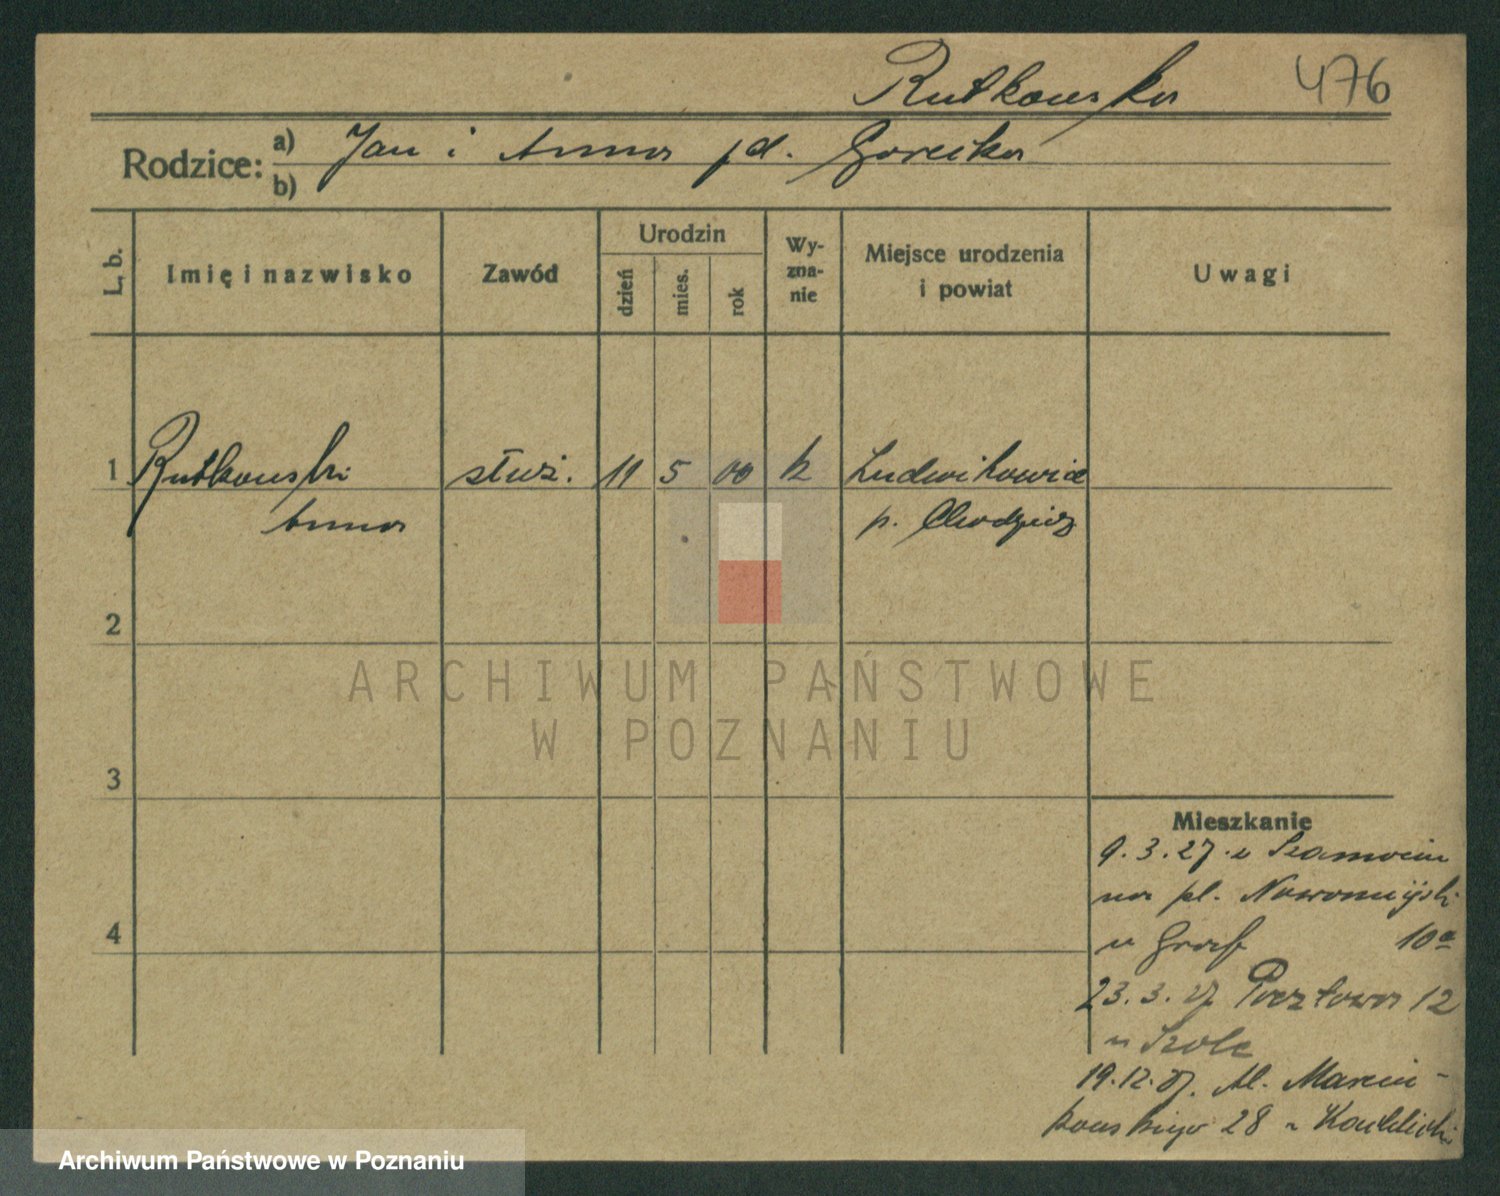 Rutkowska 476
Rodzice: a) Jan i Anna pd. Gorecka
b)
L. b. Imię i nazwisko Zawód Urodzin dzień mies. rok Wy-zna-nie Miejsce urodzenia i powiat Uwagi
1 Rutkowska służ. 11 5 00 k Ludwikowice
Anna p. Chodzież
2
3
4
Mieszkanie
9.3.27. z Szamocin
na pl. Nowomiejski
u Graf 10a
23.3.27 Pocztowa 12
u Szolc
19.12.27. Al. Marcin-
kowskiego 28
ARCHIWUM PAŃSTWOWE
W POZNANIU
Archiwum Państwowe w Poznaniu